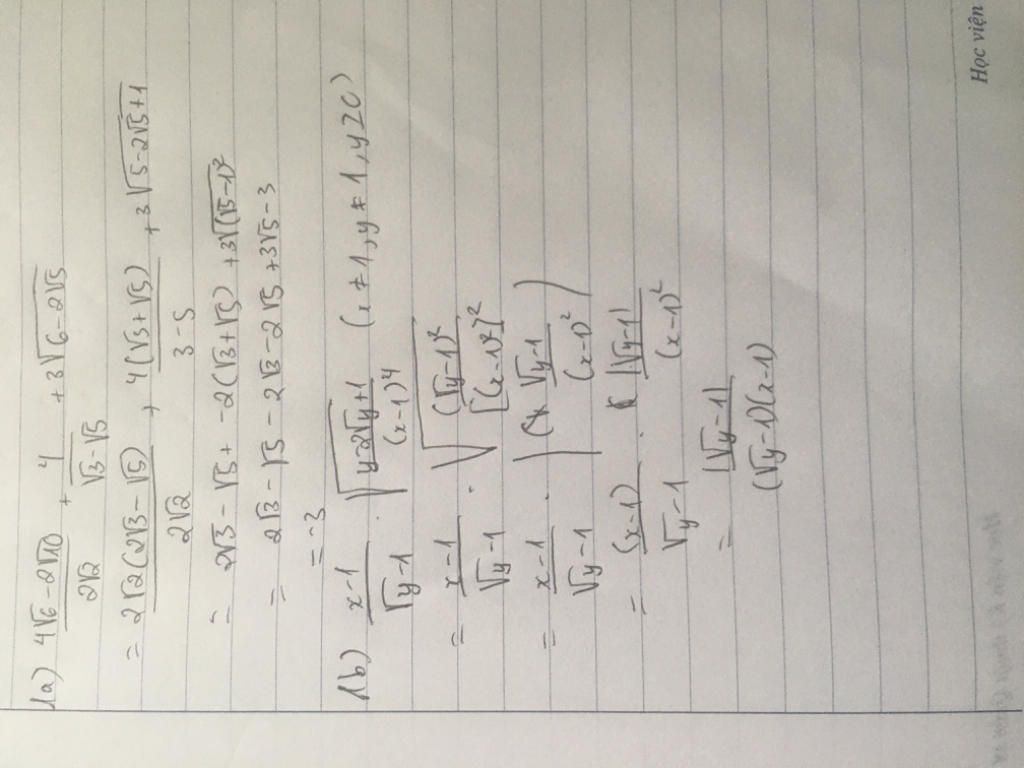 1a) (4√6 - 2√10)/(2√2) + 4/(√3 - √5) + 3√(6 - 2√5)
= 2√2(2√3 - √5)/(2√2) + 4(√3 + √5)/(3 - 5) + 3√(5 - 2√5 + 1)
= 2√3 - √5 + -2(√3 + √5) + 3√((√5 - 1)²)
= 2√3 - √5 - 2√3 - 2√5 + 3√5 - 3
= -3
1b) (x - 1)/(√y - 1) · √((y - 2√y + 1)/(x - 1)⁴) (x ≠ 1, y ≠ 1, y ≥ 0)
= (x - 1)/(√y - 1) · √((√y - 1)²/[(x - 1)²]²)
= (x - 1)/(√y - 1) · |(√y - 1)/(x - 1)²|
= (x - 1)/(√y - 1) · |√y - 1|/(x - 1)²
= |√y - 1|/((√y - 1)(x - 1))
Học viện